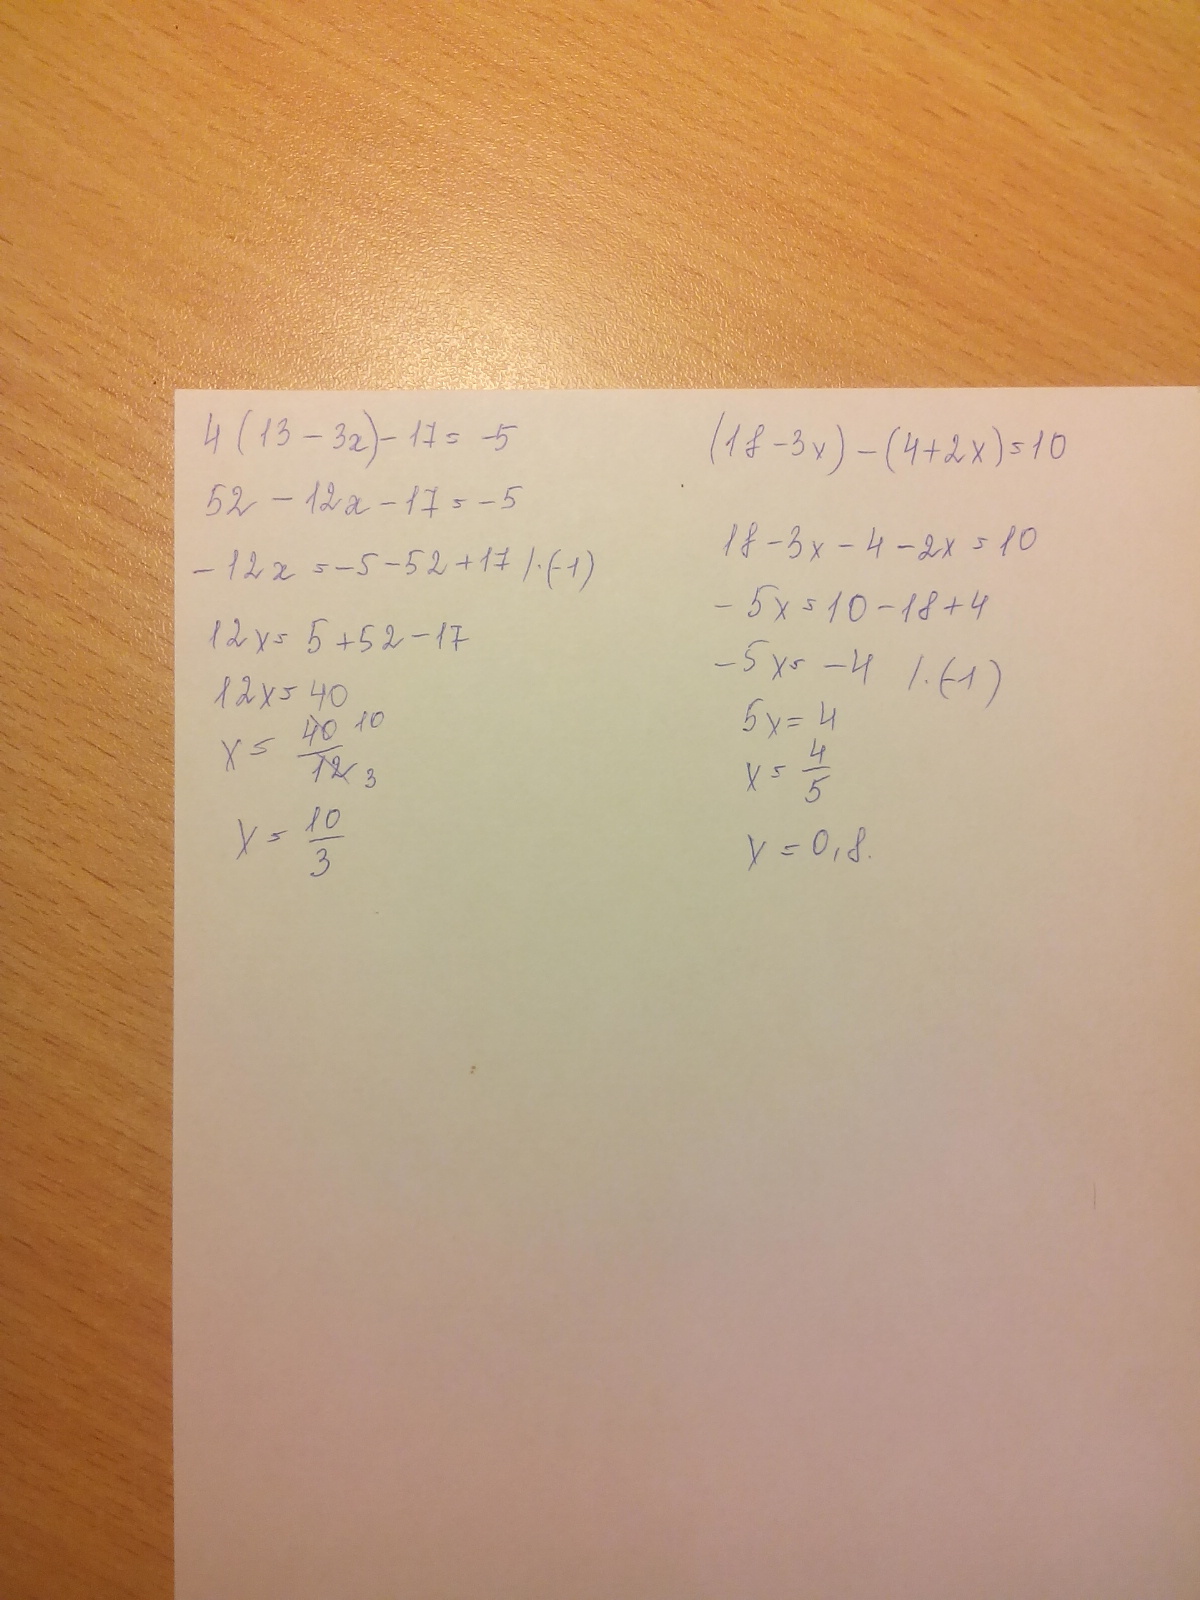 4(13-3x)-17=-5
52-12x-17=-5
-12x=-5-52+17 /·(-1)
12x=5+52-17
12x=40
x=40/12 10 3
x=10/3
(18-3x)-(4+2x)=10
18-3x-4-2x=10
-5x=10-18+4
-5x=-4 /·(-1)
5x=4
x=4/5
x=0,8.